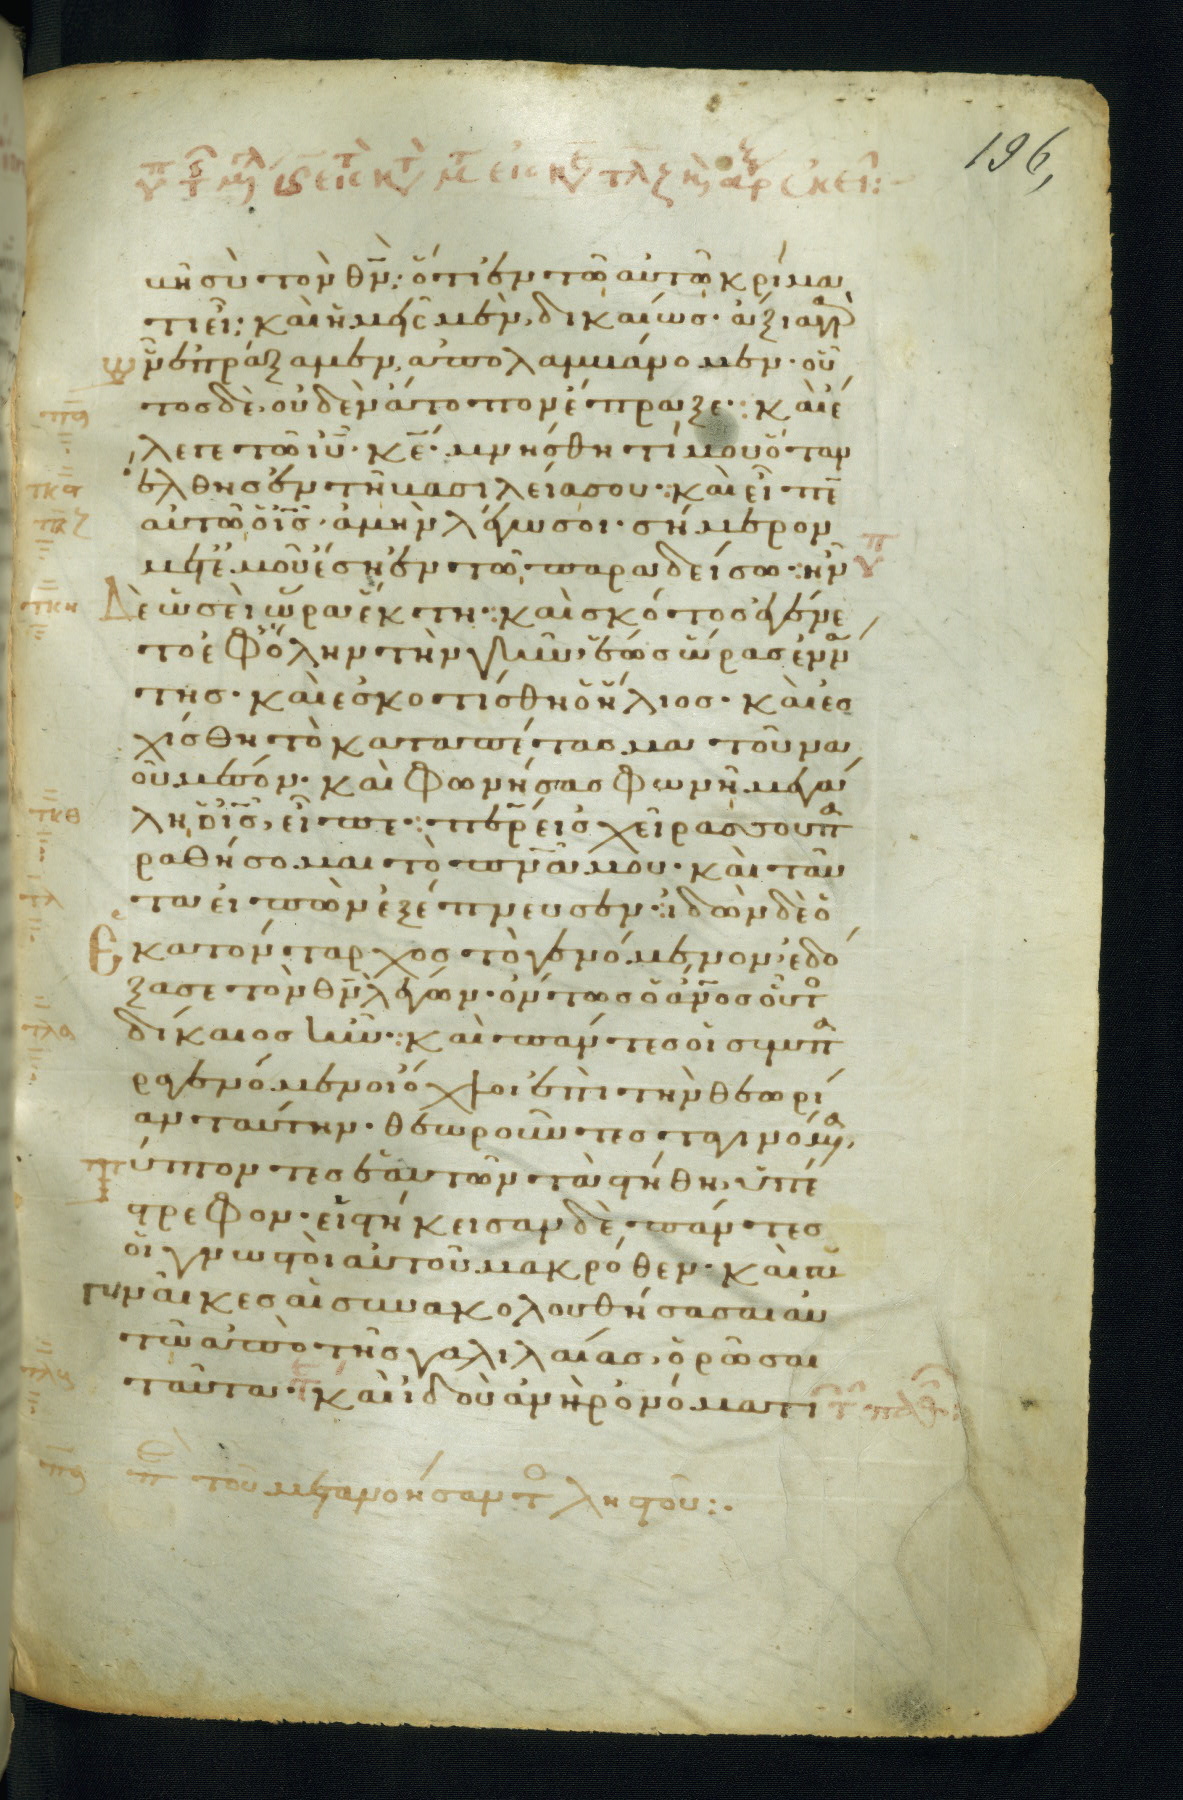 196,
βῆ σὺ τὸν θν̄· ὅτι ἐν τῶ αὐτῶ κρίμα
τι εἶ; καὶ ἡμεῖς μὲν, δικαίως· ἄξια γὰρ
ὧν ἐπράξαμεν, ἀπολαμβάνομεν· οὗ
τος δὲ, οὐδὲν ἄτοπον ἔπραξε· καὶ ἔ
λεγε τῶ ιῦ· κε̄· μνήσθητί μου ὅταν
ἔλθης ἐν τῆ βασιλεία σου· καὶ εἶπε
αὐτῶ ὁ ις̄· ἀμὴν λέγω σοι· σήμερον
μετ' ἐμοῦ ἔση ἐν τῶ παραδείσω· ἦν
δὲ ὡσεὶ ὥρα ἕκτη· καὶ σκότος ἐγένε
το ἐφ' ὅλην τὴν γῆν ἕως ὥρας ἐννά
της· καὶ ἐσκοτίσθη ὁ ἥλιος· καὶ ἐσ
χίσθη τὸ καταπέτασμα τοῦ να
οῦ μέσον· καὶ φωνήσας φωνῆ μεγά
λη ὁ ις̄, εἶπε· περ̄ εἰς χεῖράς σου πα
ραθήσομαι τὸ πνᾱ μου· καὶ ταῦ
τα εἰπὼν ἐξέπνευσεν· ἰδὼν δὲ ὁ
ἑκατόνταρχος τὸ γενόμενον, ἐδό
ξασε τὸν θν̄ λέγων· ὄντως ὁ ἄνος οὗτο
δίκαιος ἦν· καὶ πάντες οἱ συμπα
ραγενόμενοι ὄχλοι ἐπὶ τὴν θεωρί
αν ταύτην· θεωροῦντες τὰ γενόμενα,
τύπτοντες ἑαυτῶν τὰ στήθη, ὑπέ
στρεφον· εἱστήκεισαν δὲ πάντες
οἱ γνωστοὶ αὐτοῦ μακρόθεν· καὶ
γυναῖκες αἱ συνακολουθήσασαι αὐ
τῶ ἀπὸ τῆς γαλιλαίας, ὁρῶσαι
ταῦτα· καὶ ἰδοὺ ἀνὴρ ὀνόματι
πε τοῦ μετανοήσαντο ληστοῦ:·